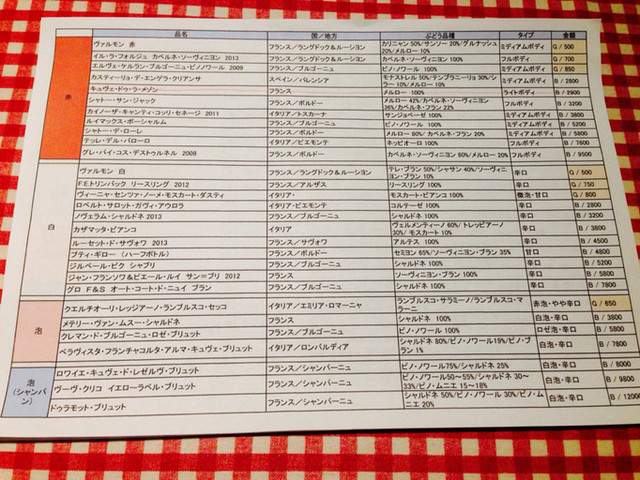 品名 国/地方 ぶどう品種 タイプ 金額
赤
ヴァルモン 赤 フランス/ラングドック&ルーション カリニャン 50%/サンソー 20%/グルナッシュ 20%/メルロー 10% ミディアムボディ G / 500
イル・ラ・フォルジュ カベルネ・ソーヴィニヨン 2013 フランス/ラングドック&ルーション カベルネ・ソーヴィニヨン 100% フルボディ G / 700
エルヴェ・ケルラン・ブルゴーニュ・ピノノワール 2009 フランス/ブルゴーニュ ピノ・ノワール 100% ミディアムボディ G / 850
カスティーリョ・デ・エンゲラ・クリアンサ スペイン/バレンシア モナストレル 50%/テンプラニーリョ 30%/シラー 10%/メルロー 10% ミディアムボディ B / 2800
キュヴェ・ドゥ・ラ・メゾン フランス メルロー 100% ライトボディ B / 2900
シャトー・サン・ジャック フランス/ボルドー メルロー 42%/カベルネ・ソーヴィニヨン 38%/カベルネ・フラン 20% フルボディ B / 3200
カイノーザ・キャンティ・コッリ・セネージ 2011 イタリア/トスカーナ サンジョベーゼ 100% ミディアムボディ B / 3800
ルイマックス・ボーシャルム フランス/ブルゴーニュ ピノ・ノワール 100% ミディアムボディ B / 5200
シャトー・デ・ローレ フランス/ボルドー メルロー 80%/カベルネ・フラン 20% ミディアムボディ B / 5800
テッレ・デル・バローロ イタリア/ピエモンテ ネッビオーロ 100% フルボディ B / 7800
グレ・バイ・コス・デストゥルネル 2008 フランス/ボルドー カベルネ・ソーヴィニヨン 80%/メルロー 20% フルボディ B / 9500
白
ヴァルモン 白 フランス/ラングドック&ルーション テレ・ブラン 50%/シャサン 40%/ソーヴィニヨン・ブラン 10% 辛口 G / 500
F.E.トリンバック リースリング 2012 フランス/アルザス リースリング 100% 辛口 G / 750
ヴィーニャ・センツァ・ノーメ・モスカート・ダスティ イタリア モスカート・ビアンコ 100% 微泡・甘口 G / 800
ロベルト・サロット・ガヴィ・アウロラ イタリア/ピエモンテ コルテーゼ 100% 辛口 B / 2800
ノヴェラム・シャルドネ 2013 フランス/ブルゴーニュ シャルドネ 100% 辛口 B / 3200
カザマッタ・ビアンコ イタリア ヴェルメンティーノ 60%/トレッビアーノ 30%/モスカート 10% 辛口 B / 3800
ルーセット・ド・サヴォワ 2013 フランス/サヴォワ アルテス 100% 辛口 B / 4500
プティ・ギロー (ハーフボトル) フランス/ボルドー セミヨン 65%/ソーヴィニヨン・ブラン 35% 甘口 B / 4800
ジルベール・ピク シャブリ フランス/ブルゴーニュ シャルドネ 100% 辛口 B / 5200
ジャン・フランソワ&ピエール・ルイ サン=ブリ 2012 フランス ソーヴィニヨン・ブラン 100% 辛口 B / 5800
グロ F&S オート・コート・ド・ニュイ ブラン フランス/ブルゴーニュ シャルドネ 100% 辛口 B / 7800
泡
クエルチオーリ・レッジアーノ・ランブルスコ・セッコ イタリア/エミリア・ロマーニャ ランブルスコ・サラミーノ/ランブルスコ・マラーニ 赤泡・やや辛口 G / 650
メテリー・ヴァン・ムスー・シャルドネ フランス シャルドネ 100% 白泡・辛口 B / 3800
クレマン・ド・ブルゴーニュ・ロゼ・ブリュット フランス/ブルゴーニュ ピノ・ノワール 100% ロゼ泡・辛口 B / 5800
ベラヴィスタ・フランチャコルタ・アルマ・キュヴェ・ブリュット イタリア/ロンバルディア シャルドネ 80%/ピノ・ノワール19%/ピノ・ブラン 1% 白泡・辛口 B / 7800
泡
(シャンパン)
ロワイエ・キュヴェ・ド・レゼルヴ・ブリュット フランス/シャンパーニュ ピノ・ノワール75%/シャルドネ 25% 白泡・辛口 B / 8200
ヴーヴ・クリコ イエローラベル・ブリュット フランス/シャンパーニュ ピノ・ノワール50~55%/シャルドネ 30~33%/ピノ・ムニエ 15~18% 白泡・辛口 B / 9800
ドゥラモット・ブリュット フランス/シャンパーニュ シャルドネ 50%/ピノ・ノワール 30%/ピノ・ムニエ 20% 白泡・辛口 B / 12000